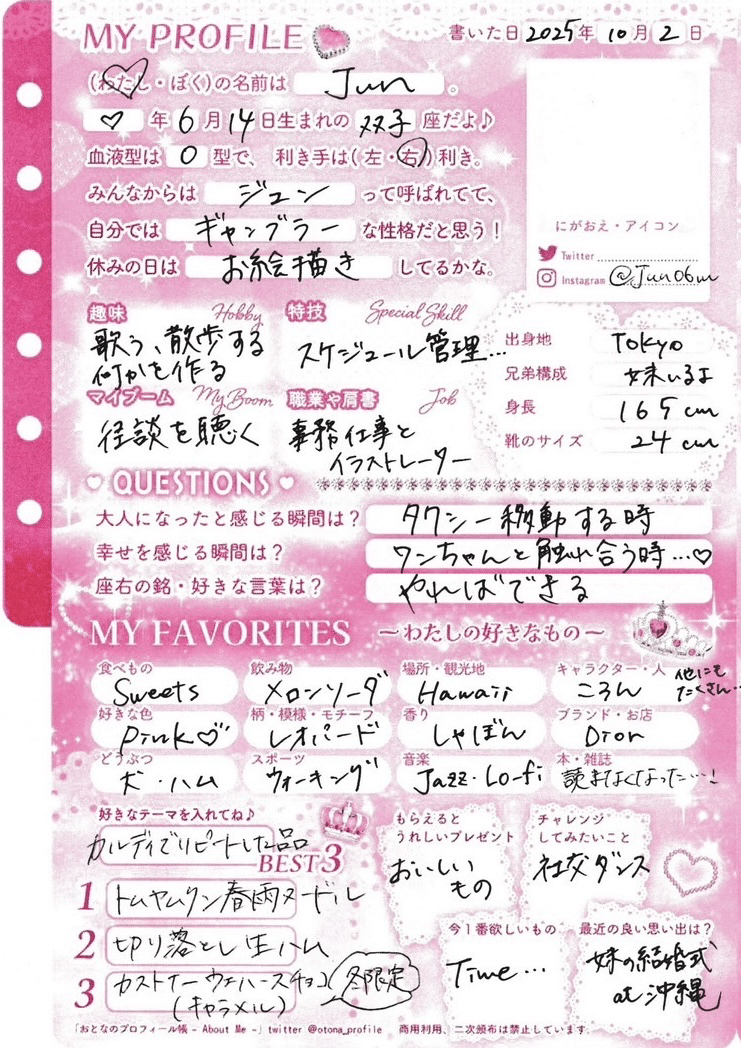 MY PROFILE
書いた日 2025年 10月 2日
(わたし・ぼく)の名前は Jun 。
♡ 年 6 月 14 日生まれの 双子 座だよ♪
血液型は O 型で、 利き手は(左・右)利き。
みんなからは ジュン って呼ばれてて、
自分では ギャンブラー な性格だと思う!
休みの日は お絵描き してるかな。
にがおえ・アイコン
Twitter
Instagram @Jun06m
趣味 Hobby
歌う、散歩する
何かを作る
特技 Special Skill
スケジュール管理...
マイブーム My Boom
怪談を聴く
職業や肩書 Job
事務仕事と
イラストレーター
出身地 Tokyo
兄弟構成 妹いるよ
身長 165cm
靴のサイズ 24cm
♥ QUESTIONS ♥
大人になったと感じる瞬間は? タクシー移動する時
幸せを感じる瞬間は? ワンちゃんと触れ合う時...♡
座右の銘・好きな言葉は? やればできる
MY FAVORITES ~わたしの好きなもの~
食べもの Sweets
飲み物 メロンソーダ
場所・観光地 Hawaii
キャラクター・人 ころん 他にもたくさん...
好きな色 pink♡
柄・模様・モチーフ レオパード
香り しゃぼん
ブランド・お店 Dior
どうぶつ 犬・ハム
スポーツ ウォーキング
音楽 Jazz・Lo-fi
本・雑誌 読まなくなった...!
好きなテーマを入れてね♪
カルディでリピートした品
BEST3
1 トムヤムクン春雨ヌードル
2 切り落とし生ハム
3 カスタナーウェハースチョコ
(キャラメル)
冬限定
もらえると
うれしいプレゼント
おいしい
もの
チャレンジ
してみたいこと
社交ダンス
今1番欲しいもの
Time...
最近の良い思い出は?
妹の結婚式
at 沖縄
「おとなのプロフィール帳 - About Me -」twitter @otona_profile 商用利用、二次頒布は禁止しています。